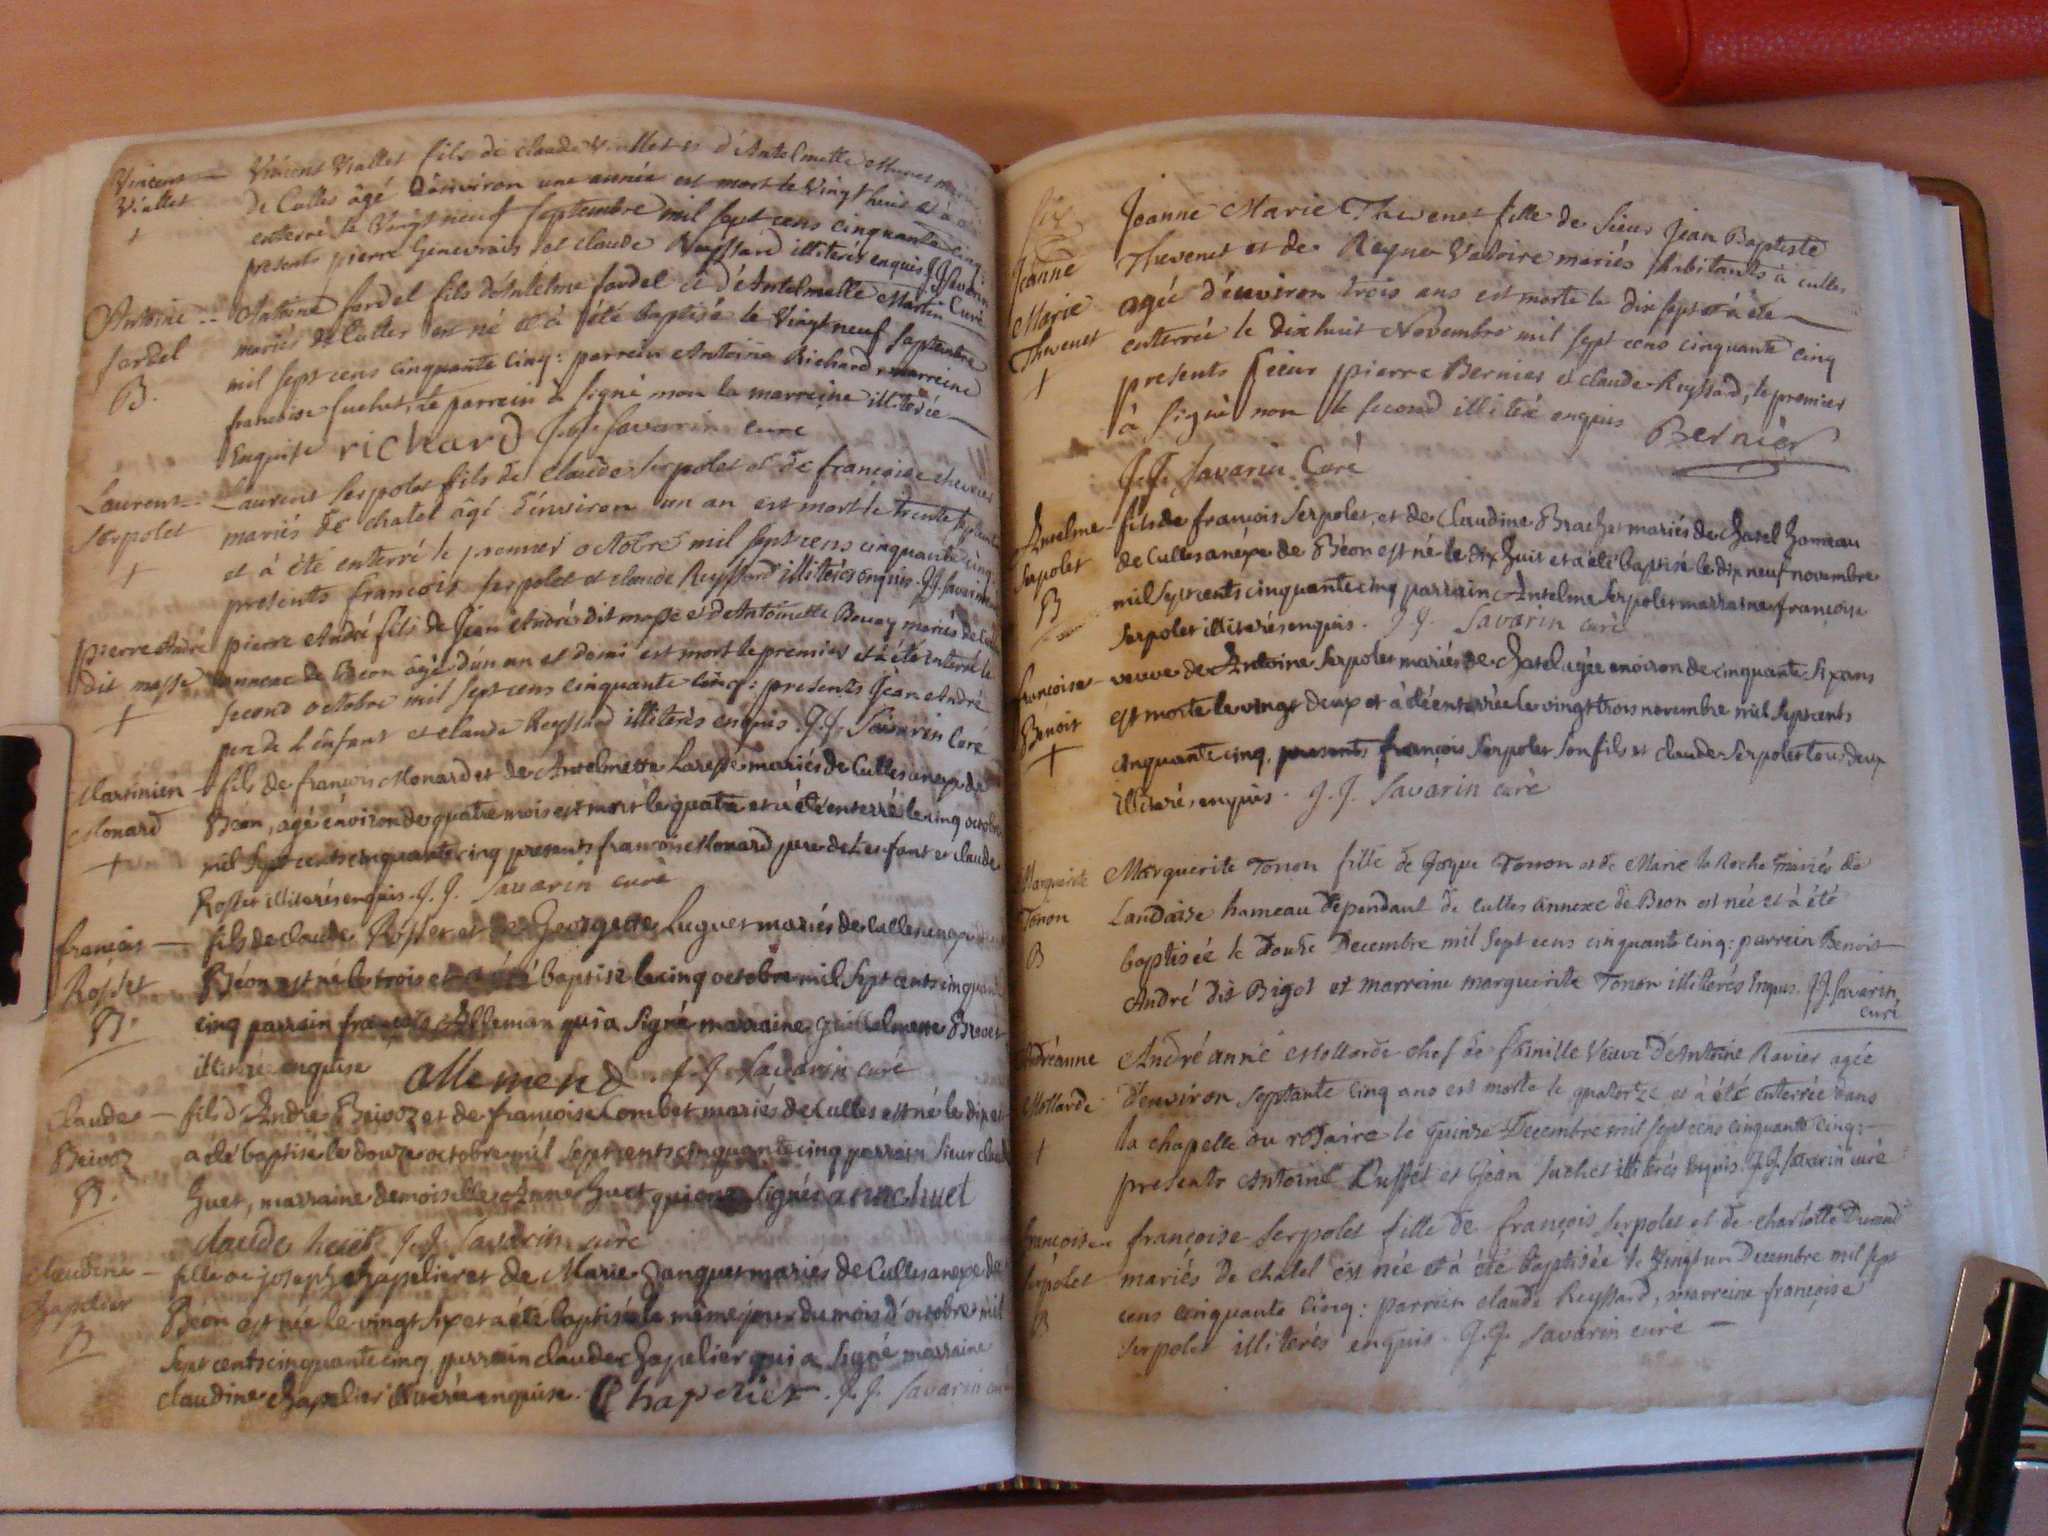 Vincent Viallet fils de claude Viallet et d'Antelmette
Viallet
+
de Culles âgé d'environ une année est mort le vingt huit et à
enterré le vingt neuf septembre mil sept cens cinquante cinq:
presents pierre Genevrais et claude Reyssard illiterés enquis J.J. Savarin
Curé
Antoine -- Antoine fardel fils d'Antelme fardel et d'Antelmette Martin
fardel mariés de Culles est né et à été baptisé le vingt neuf septembre
B. mil sept cens cinquante cinq: parrein Antoine Richard, marreine
francoise suchet, le parrein à signé non la marreine illiterée
Enquise richard J.J. Savarin curé
Laurent -- Laurent Serpolet fils de claude Serpolet et de francoise
Serpolet mariés de chatel âgé d'environ un an est mort le trente septembre
+ et à été enterré le premier octobre mil sept cens cinquante cinq
presents francois Serpolet et claude Reyssard illiterés enquis. J.J. Savarin
pierre André pierre André fils de Jean André dit masse et d'Antoinette Bovay mariés de
dit masse annexe de Beon âgé d'un an et demi est mort le premier et à été enterré le
+ second octobre mil sept cens cinquante cinq: presents Jean André
pere de L'enfant et claude Reyssard illiterés enquis. J.J. Savarin Curé
Martinien - fils de françois Monard et de Antelmette mariés de Culles anexe de
Monard Béon, agé environ de quatre mois est mort le quatre et a été enterré le cinq octobre
+ mil sept cents cinquante cinq presents françois Monard pere de Lenfant et claude
Rosset illiterés enquis. J.J. Savarin curé
françois - fils de claude Rosset et de Georgette Luguet mariés de Culles anexe
Rosset Béon est né le trois et a été baptisé le cinq octobre mil sept cents cinquante
B. cinq parrain françois Alleman qui a signé marraine Guillelmette
illiterée enquise allemend J.J. Savarin curé
Claude - fils d'André Beivoz et de françoise Combet mariés de Culles est né le dix et
Beivoz a été baptisé le douze octobre mil sept cents cinquante cinq parrain Sieur claude
B. huet, marraine demoiselle Anne huet qui ont signés anne huet
claude huet J.J. Savarin curé
Claudine - fille de joseph chapelier et de Marie mariés de Culles anexe de
Chapelier Béon est née le vingt six et a été baptisée le même jour du mois d'octobre mil
B sept cents cinquante cinq, parrain claude chapelier qui a signé marraine
claudine chapelier illiterée enquise. Chapelier. J.J. Savarin curé
Six
Jeanne Jeanne Marie Thevenet fille de sieur Jean Baptiste
Marie Thevenet et de Reyne mariés habitants à culles
Thevenet agée d'environ trois ans est morte le dix sept et à été
+ enterrée le dix huit Novembre mil sept cens cinquante cinq
presents sieur pierre Bernier et claude Reyssard, le premier
à signé non le second illiteré enquis Bernier
J.J. Savarin Curé
Anselme - fils de françois Serpolet, et de Claudine Brachet mariés de Chatel hameau
Serpolet de Culles anexe de Béon est né le dix huit et a été baptisé le dix neuf novembre
B mil sept cents cinquante cinq parrain Anselme Serpolet marraine françoise
Serpolet illiterés enquis. J.J. Savarin curé
françoise - veuve de Antoine Serpolet mariés de chatel agée environ de cinquante six ans
Benoit est morte le vingt deux et à été enterrée le vingt trois novembre mil sept cents
+ cinquante cinq, presents françois Serpolet son fils et claude Serpolet tous deux
illiterés enquis. J.J. Savarin curé
Marguerite Marguerite Tonon fille de Jaque Tonon et de Marie la Roche mariés de
Tonon Landaise hameau dependant de culles annexe de Beon est née et à été
B baptisée le douze Decembre mil sept cens cinquante cinq: parrein Benoit
André dit Bigot et marreine marguerite Tonon illiterés Enquis. J.J. Savarin
curé
Andréanne Andréanne Mollarde chef de famille Veuve d'Antoine Ravier agée
Mollarde d'environ septante cinq ans est morte le quatorze et à été enterrée dans
+ la chapelle du rosaire le quinze Decembre mil sept cens cinquante cinq:
presents Antoine et Jean Suchet illiterés enquis. J.J. Savarin curé
Françoise - françoise Serpolet fille de françois Serpolet et de charlotte Durand
Serpolet mariés de chatel est née et à été baptisée le vingt un Decembre mil sept
B cens cinquante cinq: parrein claude Reyssard, marreine françoise
Serpolet illiterés enquis. J.J. Savarin curé